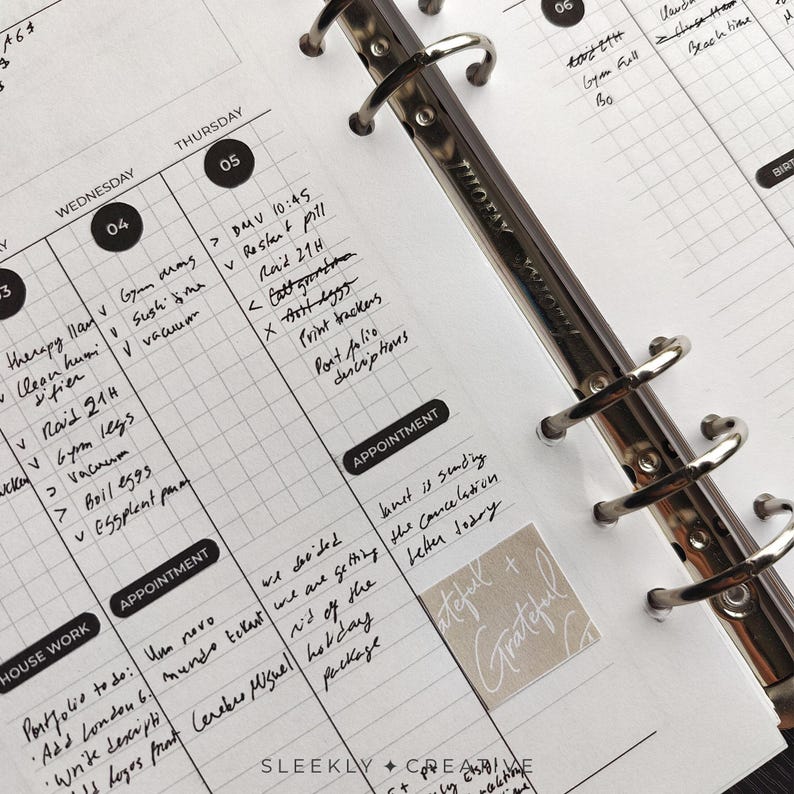 THURSDAY
05
> DMV 10:45
v Restart pill
Raid 21H
< 
x Boil eggs
Print trackers
Portfolio
descriptions
APPOINTMENT
Janet is sending
the cancelation
letter today
WEDNESDAY
04
v Gym arms
v Sushi time
v vacuum
APPOINTMENT
we decided
we are getting
rid of the
holiday
package
03
therapy 11am
v Clean humi
difier
v Raid 21H
v Gym legs
> vacuum
> Boil eggs
v Eggplant parm
HOUSE WORK
Um novo
mundo
Cerebro Miguel
Portfolio to do:
· Add London 6.
· Write descripti
Add logos front
FILOFAX
06
Raid 21H
Gym Full
Bo
Beach time
BIRT
Grateful +
Grateful
G
SLEEKLY ✦ CREATIVE